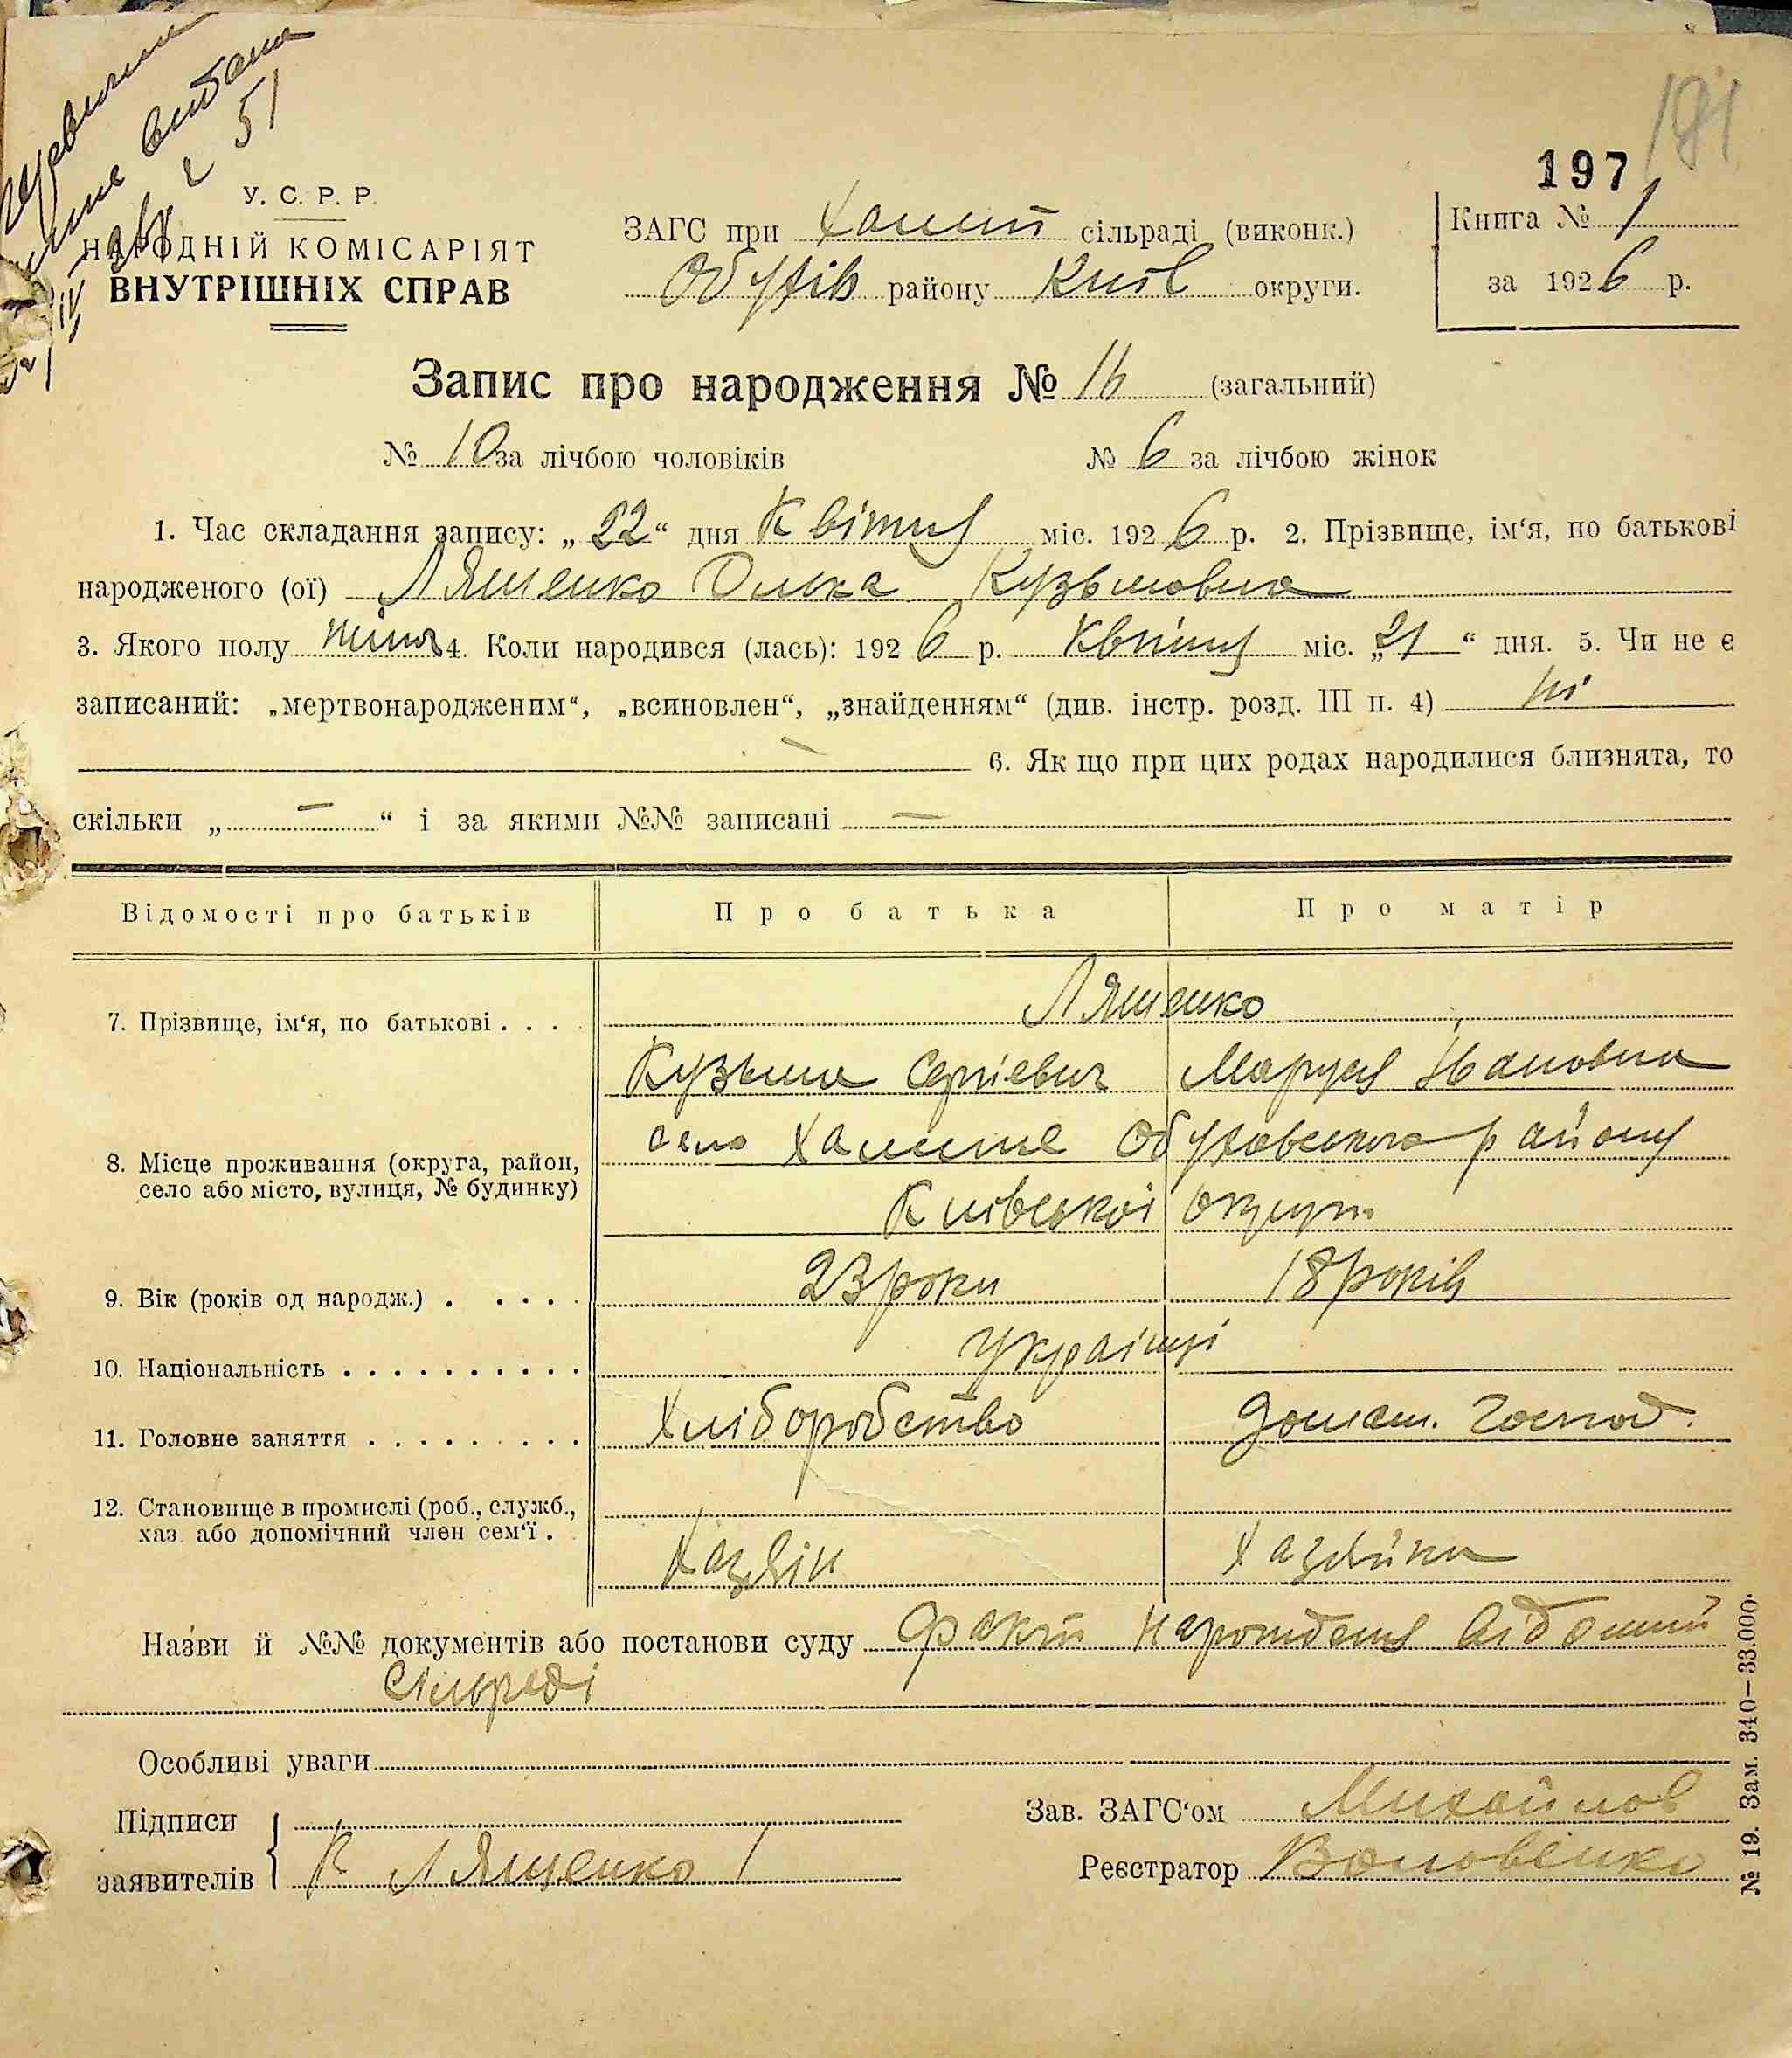 197
191
У. С. Р. Р.
НАРОДНІЙ КОМІСАРІЯТ
ВНУТРІШНІХ СПРАВ
ЗАГС при Халепй сільраді (виконк.)
Обухів району Київ округи.
Книга № 1
за 1926 р.
Запис про народження № 16 (загальний)
№ 10 за лічбою чоловіків № 6 за лічбою жінок
1. Час складання запису: „22“ дня Квітня міс. 1926 р. 2. Прізвище, ім‘я, по батькові
народженого (ої) Лященко Ольга Кузьмовна
3. Якого полу жіноч 4. Коли народився (лась): 1926 р. Квітня міс. „21“ дня. 5. Чи не є
записаний: „мертвонародженим“, „всиновлен“, „знайденням“ (див. інстр. розд. III п. 4) ні
— 6. Як що при цих родах народилися близнята, то
скільки „—“ і за якими №№ записані —
Відомості про батьків Про батька Про матір
7. Прізвище, ім‘я, по батькові . . . . Лященко
Кузьма Сергієвич Маруся Івановна
8. Місце проживання (округа, район, село або місто, вулиця, № будинку) село Халепʼє Обуховського району
Київської округи
9. Вік (років од народж.) . . . . . 23 роки 18 років
10. Національність . . . . . . . . . . Українці
11. Головне заняття . . . . . . . . . Хліборобство домаш. господ.
12. Становище в промислі (роб., служб.,
хаз. або допомічний член сем‘ї . Хазяїн Хазяйка
Назви й №№ документів або постанови суду Факт народження відомий
Сільраді
Особливі уваги
Підписи
заявителів К Лященко
Зав. ЗАГС‘ом Михайлов
Реєстратор
№ 19. Зам. 340—33.000.